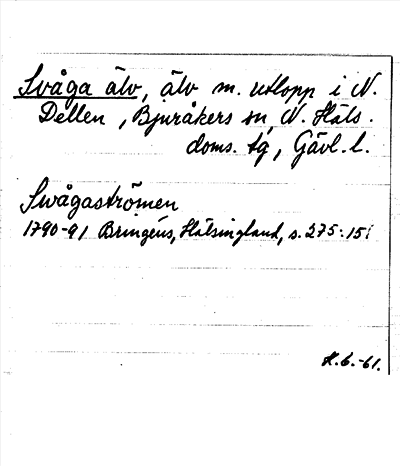 Svåga älv, älv m. utlopp i N.
Dellen, Bjuråkers sn, N. Häls.
doms. tg, Gävl. l.
Swågaströmen
1790-91 Bringéus, Hälsingland, s. 275:15
H.G.-61.